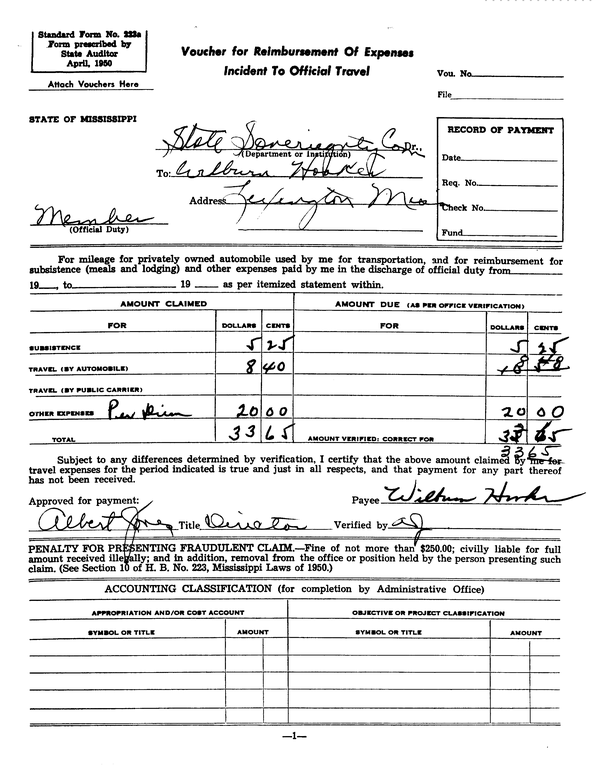 Standard Form No. 223a
Form prescribed by
State Auditor
April, 1950
Attach Vouchers Here
Voucher for Reimbursement Of Expenses
Incident To Official Travel
Vou. No.
File
STATE OF MISSISSIPPI
RECORD OF PAYMENT
Date
Req. No.
Check No.
Fund
State Sovereignty Com Dr.,
(Department or Institution)
To: Wilburn Hooker
Address Lexington Miss
Member
(Official Duty)
For mileage for privately owned automobile used by me for transportation, and for reimbursement for
subsistence (meals and lodging) and other expenses paid by me in the discharge of official duty from
19 , to 19 as per itemized statement within.
AMOUNT CLAIMED AMOUNT DUE (AS PER OFFICE VERIFICATION)
FOR DOLLARS CENTS FOR DOLLARS CENTS
SUBSISTENCE 5 25 5 25
TRAVEL (BY AUTOMOBILE) 8 40 8
TRAVEL (BY PUBLIC CARRIER)
OTHER EXPENSES Per Diem 20 00 20 00
TOTAL 33 65 AMOUNT VERIFIED: CORRECT FOR
33 65
Subject to any differences determined by verification, I certify that the above amount claimed by me for
travel expenses for the period indicated is true and just in all respects, and that payment for any part thereof
has not been received.
Payee Wilburn Hooker
Approved for payment:
Albert Jones Title Director Verified by AJ
PENALTY FOR PRESENTING FRAUDULENT CLAIM.—Fine of not more than $250.00; civilly liable for full
amount received illegally; and in addition, removal from the office or position held by the person presenting such
claim. (See Section 10 of H. B. No. 223, Mississippi Laws of 1950.)
ACCOUNTING CLASSIFICATION (for completion by Administrative Office)
APPROPRIATION AND/OR COST ACCOUNT OBJECTIVE OR PROJECT CLASSIFICATION
SYMBOL OR TITLE AMOUNT SYMBOL OR TITLE AMOUNT
—1—